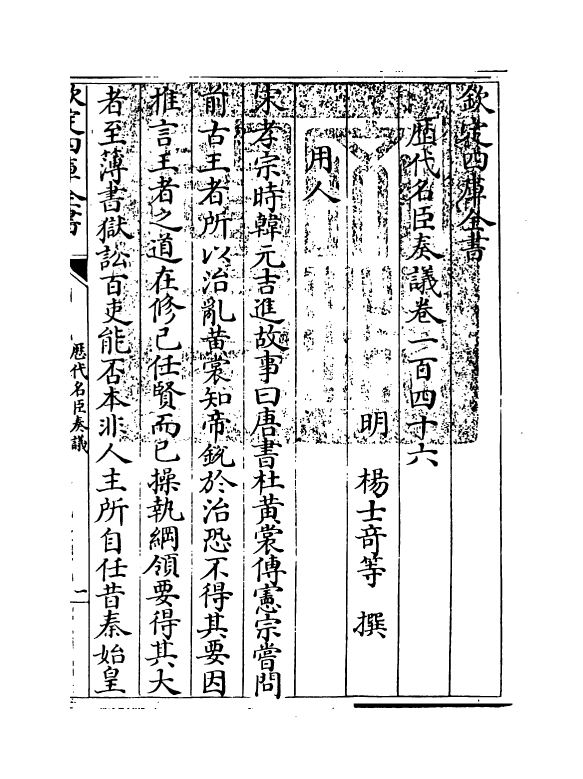 欽定四庫全書
歴代名臣奏議卷一百四十六
明 楊士竒等 撰
用人
宋孝宗時韓元吉進故事曰唐書杜黄裳傳憲宗嘗問
前古王者所以治亂黄裳知帝鋭於治恐不得其要因
推言王者之道在修己任賢而已操執綱領要得其大
者至薄書獄訟百吏能否本非人主所自任昔秦始皇
欽定四庫全書
歴代名臣奏議
一